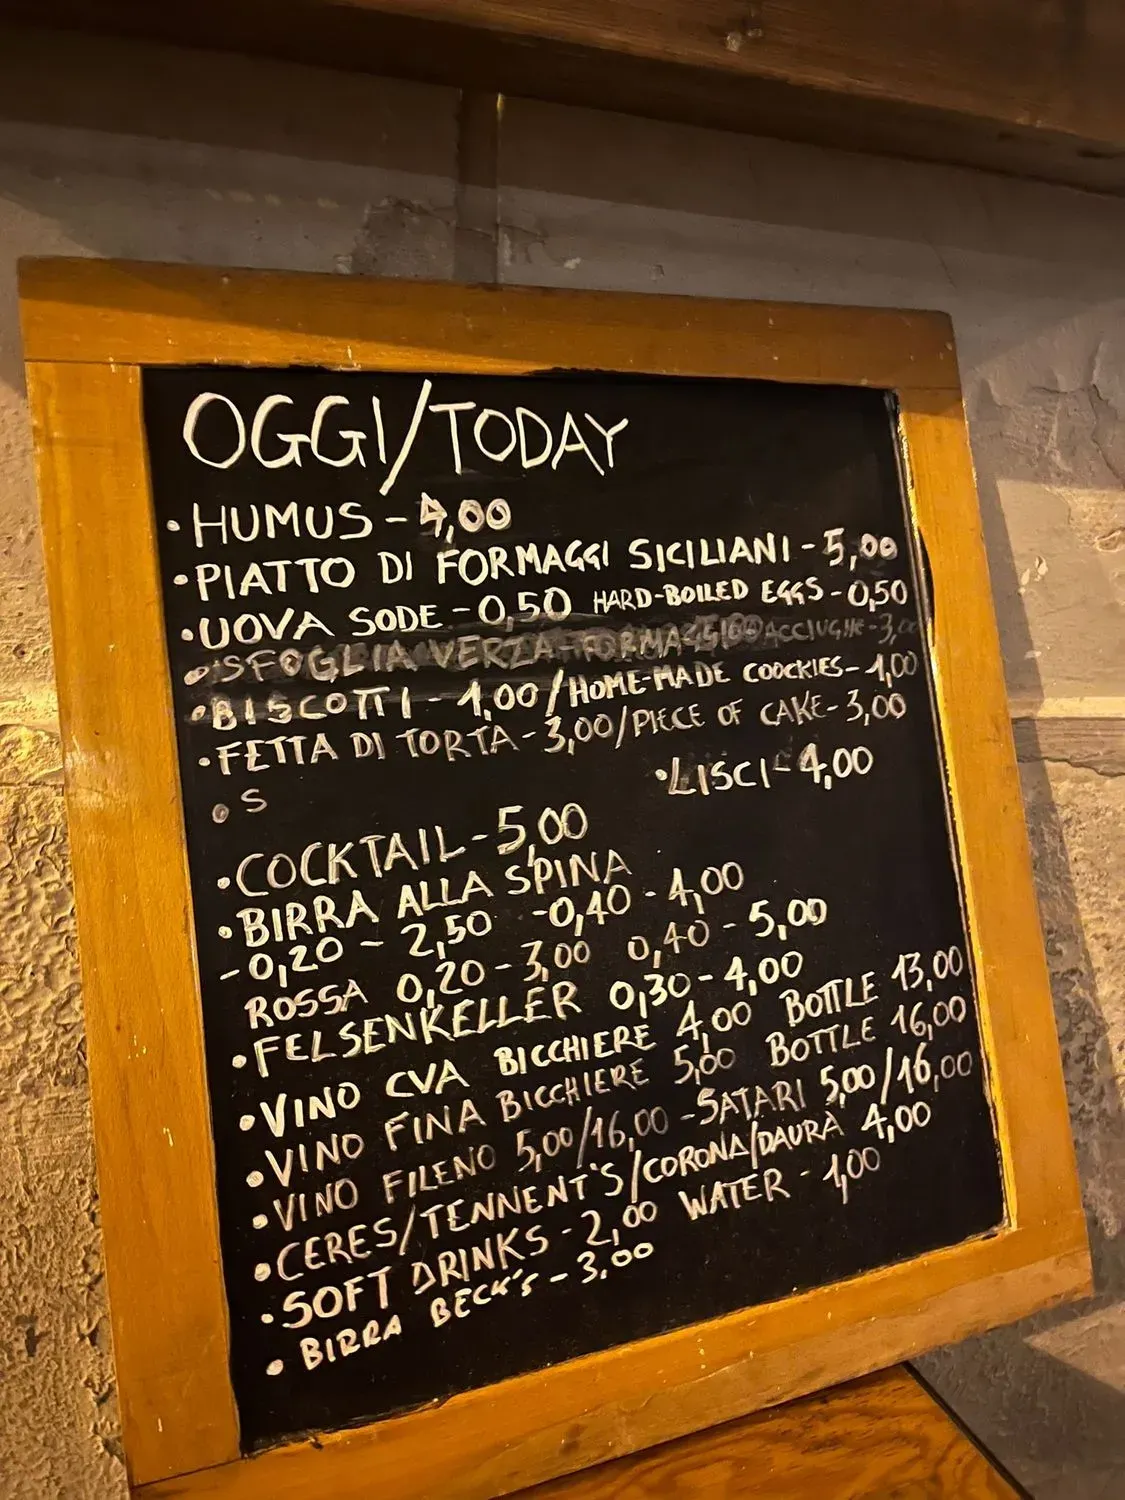 OGGI/TODAY
• HUMUS - 4,00
• PIATTO DI FORMAGGI SICILIANI - 5,00
• UOVA SODE - 0,50 HARD-BOILED EGGS - 0,50
• SFOGLIA VERZA-FORMAGGIO ACCIUGHE - 3,00
• BISCOTTI - 1,00 / HOME-MADE COOCKIES - 1,00
• FETTA DI TORTA - 3,00/PIECE OF CAKE - 3,00
• S
• LISCI - 4,00
• COCKTAIL - 5,00
• BIRRA ALLA SPINA
- 0,20 - 2,50 - 0,40 - 4,00
ROSSA 0,20 - 3,00 0,40 - 5,00
• FELSENKELLER 0,30 - 4,00
• VINO CVA BICCHIERE 4,00 BOTTLE 13,00
• VINO FINA BICCHIERE 5,00 BOTTLE 16,00
• VINO FILENO 5,00/16,00 - SATARI 5,00/16,00
• CERES/TENNENT'S/CORONA/DAURA 4,00
• SOFT DRINKS - 2,00 WATER - 1,00
• BIRRA BECK'S - 3,00